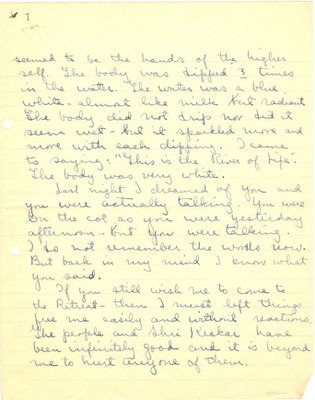 7
seemed to be the hands of the higher
self. The body was dipped 3 times
in the water. The water was a blue
white - almost like milk but radiant
The body did not drip nor did it
seem wet - but it sparkled more and
more with each dipping. I came
to saying: "This is the River of Life".
The body was very white.
Last night I dreamed of you and
you were actually talking. You were
on the cot as you were yesterday
afternoon - But you were talking.
I do not remember the words now.
But back in my mind I know what
you said.
If you still wish me to come to
the retreat - then I must left things
free me easily and without reactions.
The people and Shri have
been infinitely good and it is beyond
me to hurt anyone of them.